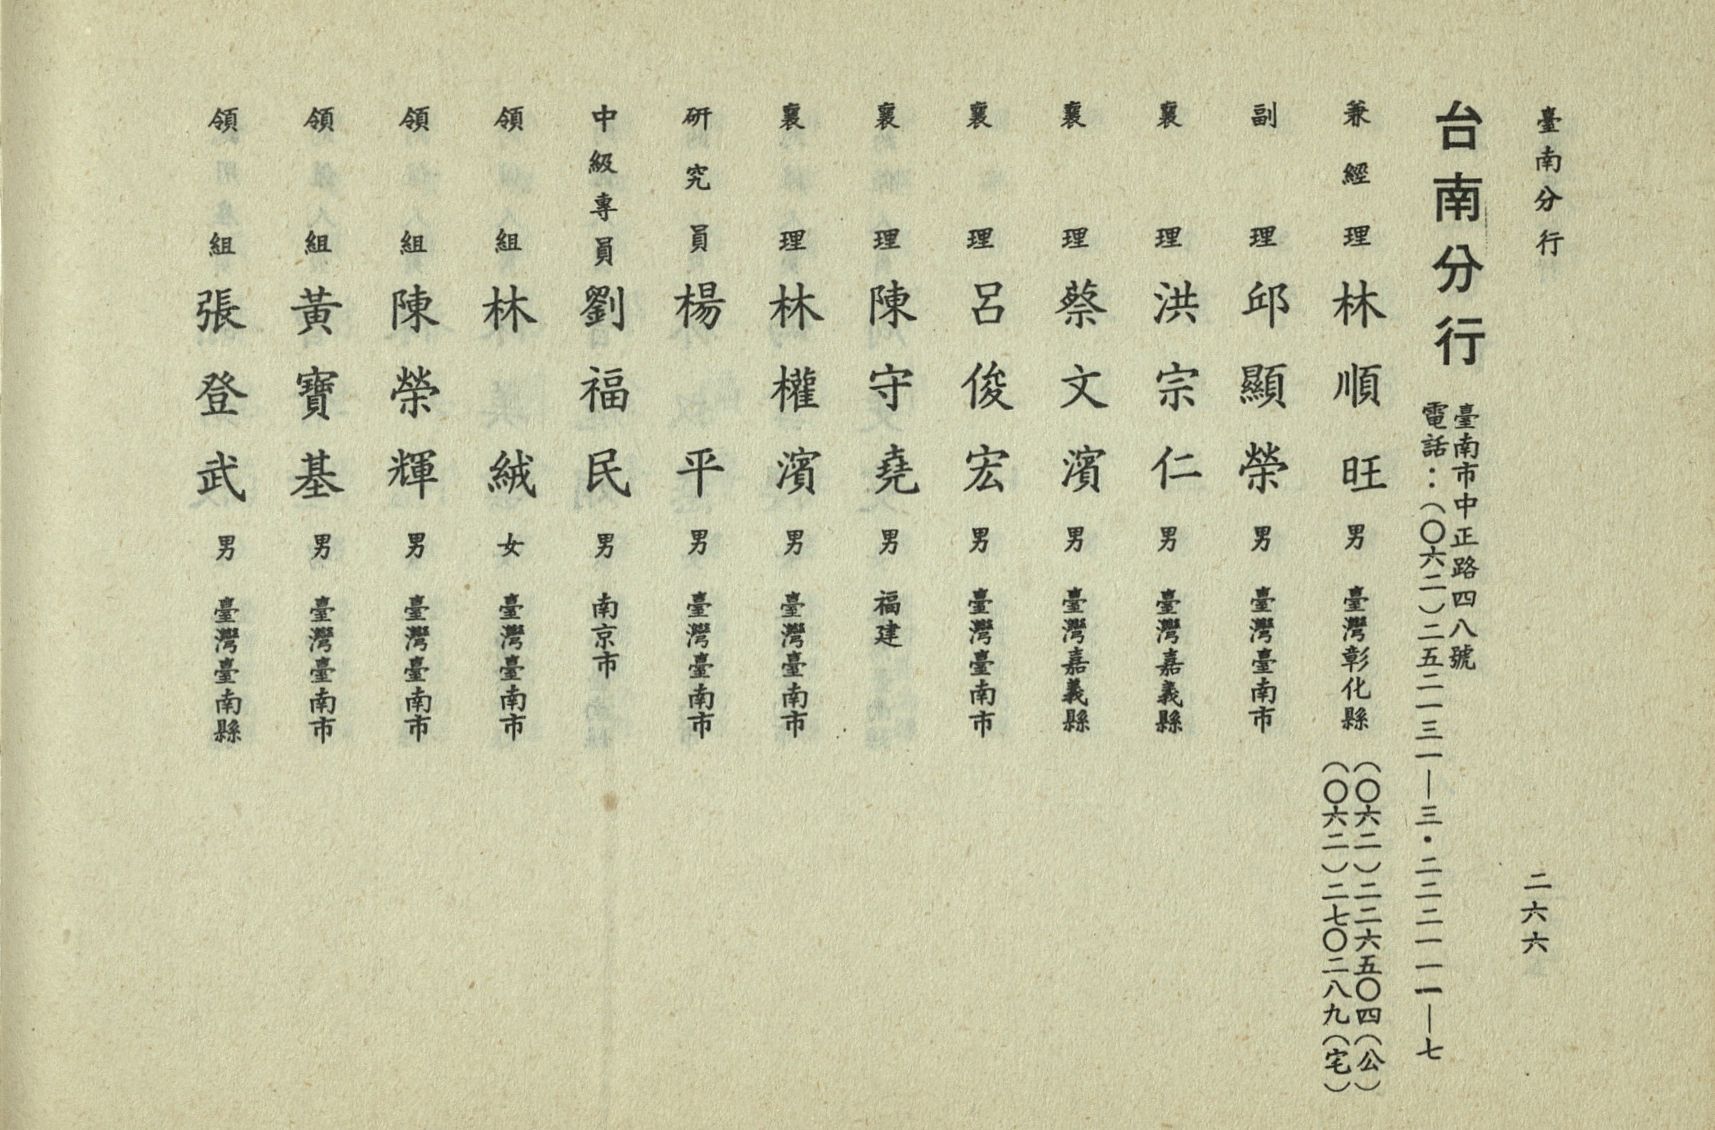 臺南分行
二六六
台南分行
臺南市中正路四八號
電話：（〇六二）二五二一三一—三・二二二一一一—七
兼經理 林順旺 男 臺灣彰化縣
（〇六二）二二六五〇四（公）
（〇六二）二七〇二八九（宅）
副理 邱顯榮 男 臺灣臺南市
襄理 洪宗仁 男 臺灣嘉義縣
襄理 蔡文濱 男 臺灣嘉義縣
襄理 呂俊宏 男 臺灣臺南市
襄理 陳守堯 男 福建
襄理 林權濱 男 臺灣臺南市
研究員 楊平 男 臺灣臺南市
中級專員 劉福民 男 南京市
領組 林絨 女 臺灣臺南市
領組 陳榮輝 男 臺灣臺南市
領組 黃寶基 男 臺灣臺南市
領組 張登武 男 臺灣臺南縣